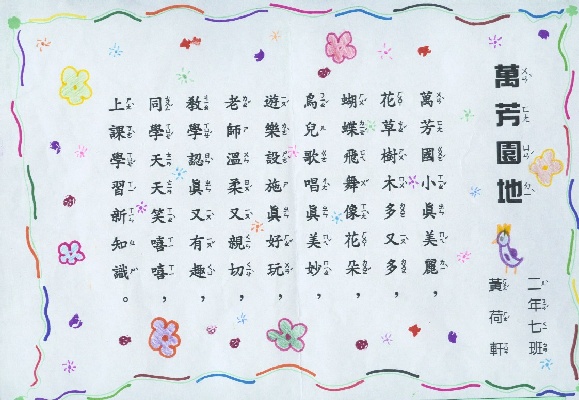 萬芳園地
二年七班
黃荷軒
萬芳國小真美麗，
花草樹木多又多，
蝴蝶飛舞像花朵，
鳥兒歌唱真美妙，
遊樂設施真好玩，
老師溫柔又親切，
教學認真又有趣，
同學天天笑嘻嘻，
上課學習新知識。